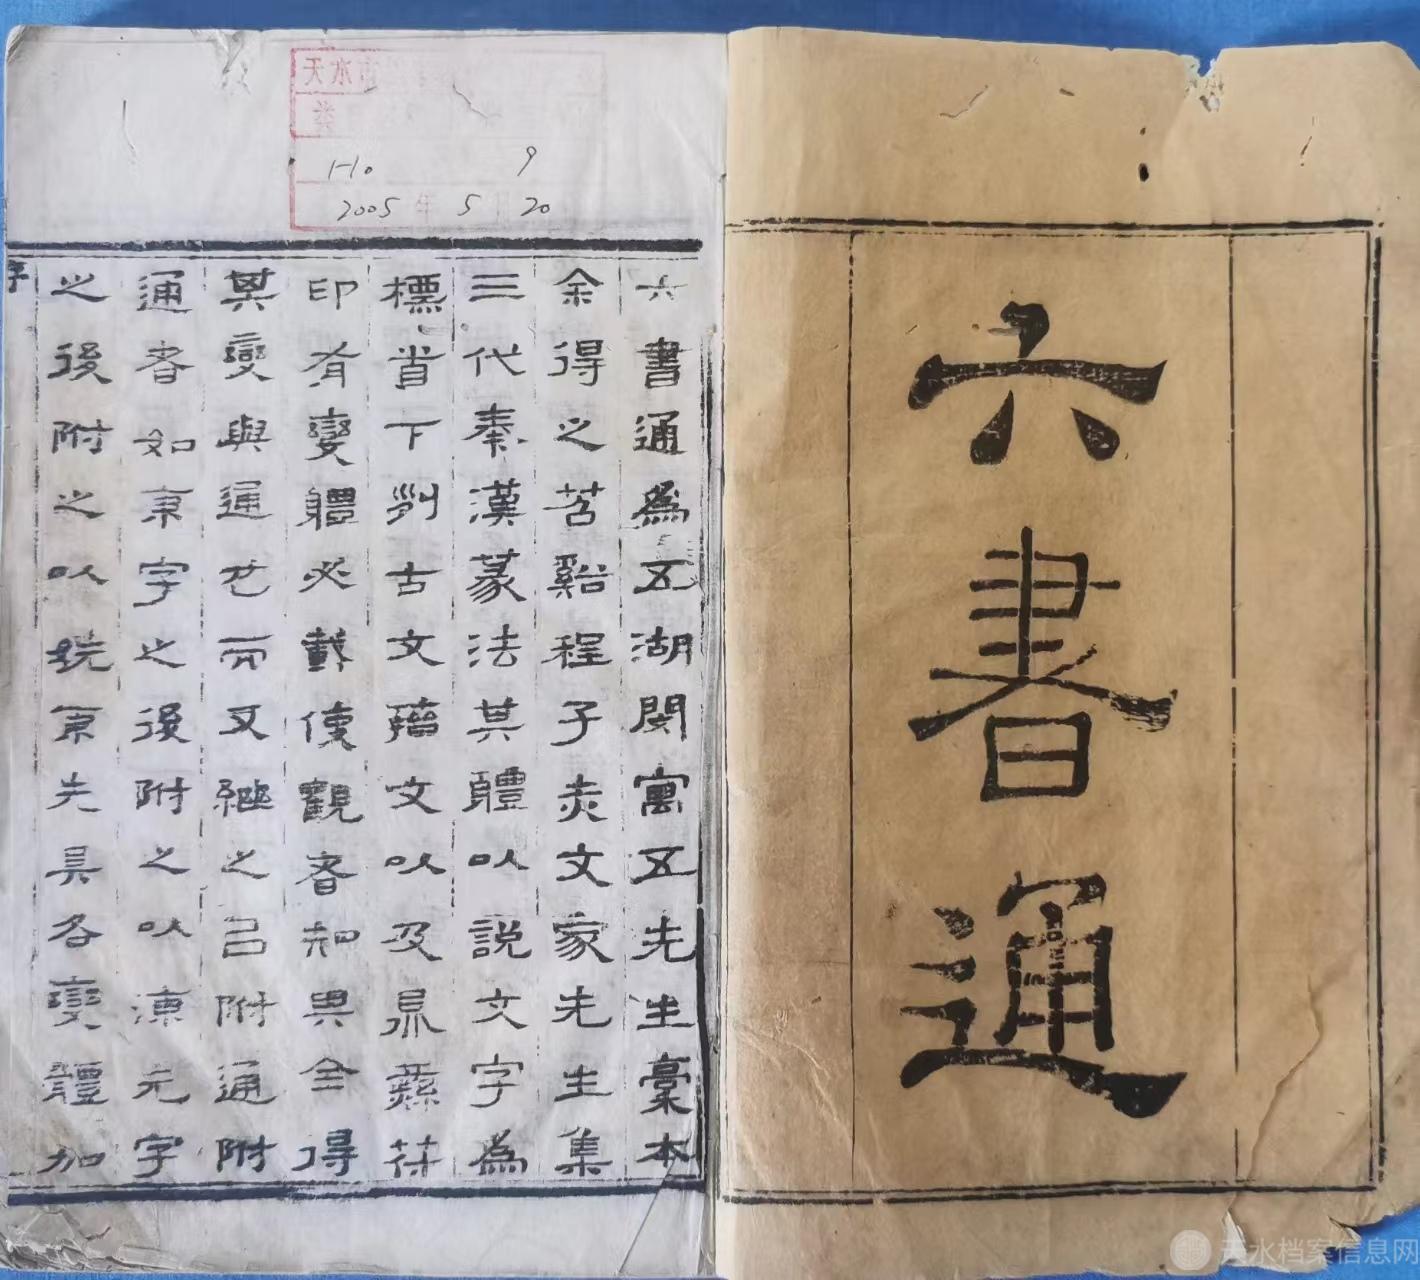 六書通
六書通為五湖閔寓五先生稾本
余得之苕谿程子赤文家先生集
三代秦漢篆法其體以説文字為
標首下列古文籀文以及鼎彝符
印有變體必載使觀者知異全得
其變與通也而又繼之㠯附通附
通者如東字之後附之以涷元字
之後附之以 東先具各變體加
序
天水市
类
1-10 9
2005年 5月 20
天水档案信息网